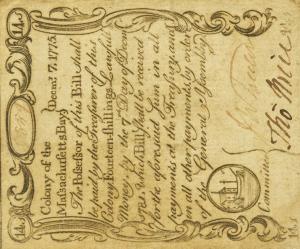 Colony of the
Massachusetts Bay} Decmr. 7. 1775.
The Possessor of this Bill shall
be paid by the Treasurer of this
Colony Fourteen shillings Lawful
Money by the Day of Decmr
which Bill shall be received
for the aforesaid Sum in all
payments at the Treasury and
in all other payments by order
of the General Assembly.
Committee
Tho